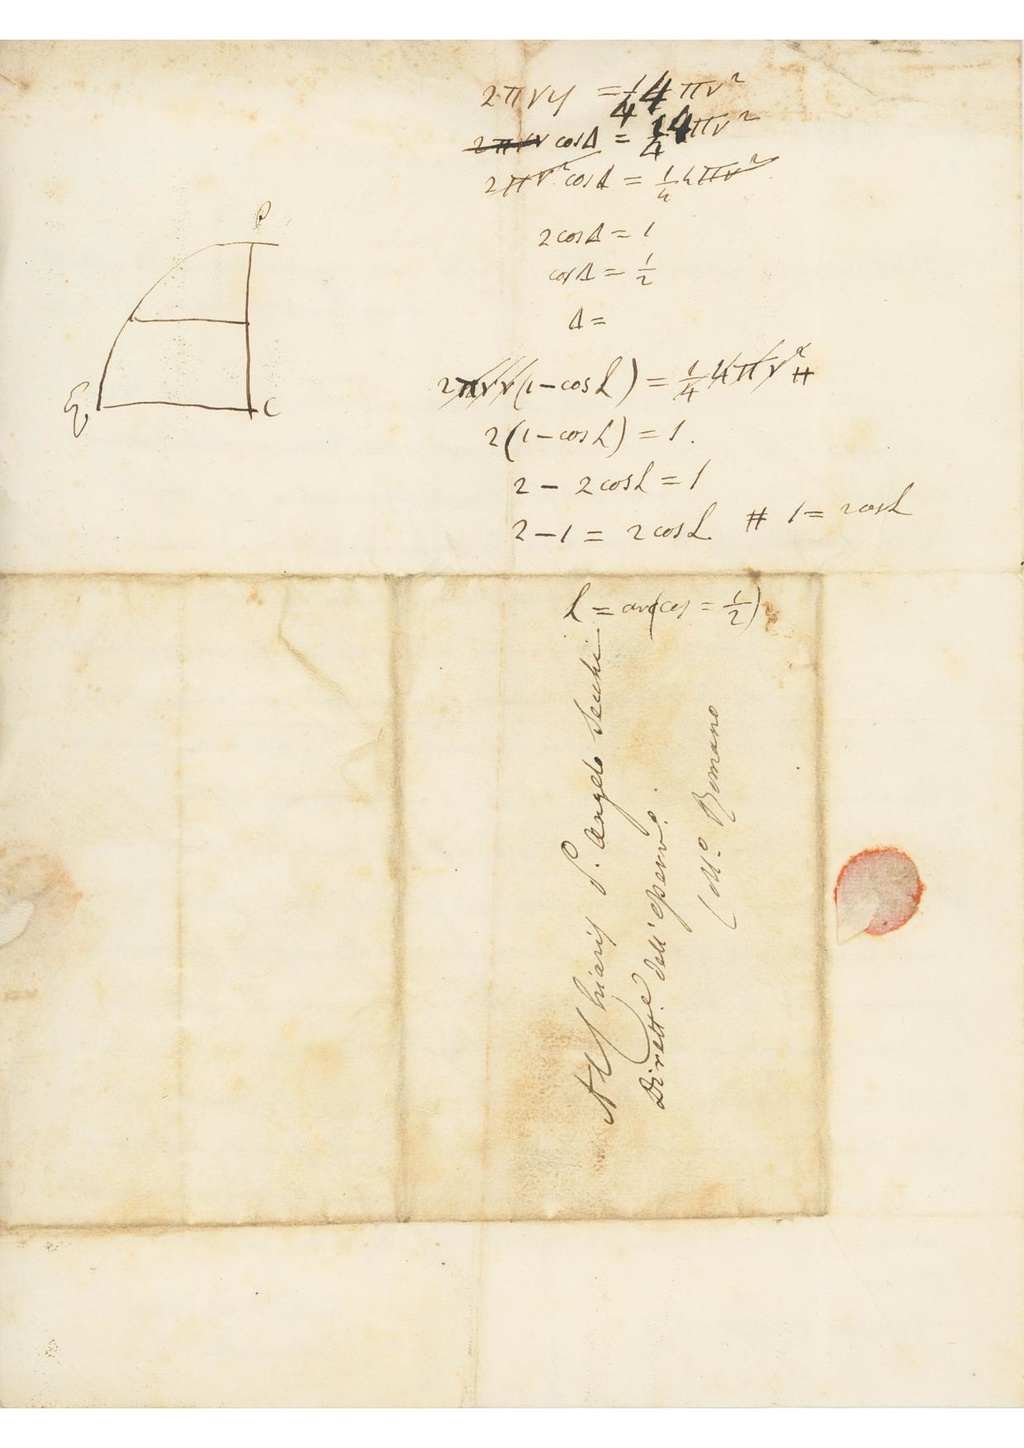 2πry = 1/4 4πr²
2πrr cosΔ = 1/4 4πr²
2πr² cosΔ = 1/4 4πr²
2cosΔ = 1
cosΔ = 1/2
Δ =
P
C
2πrr(1−cosL) = 1/4 4πr² #
2(1−cosL) = 1.
2 − 2cosL = 1
2−1 = 2cosL # 1 = 2cosL
L = arc(cos = 1/2)
Al Chiaris P. Angelo Secchi
Dirett.e dell'
Romano